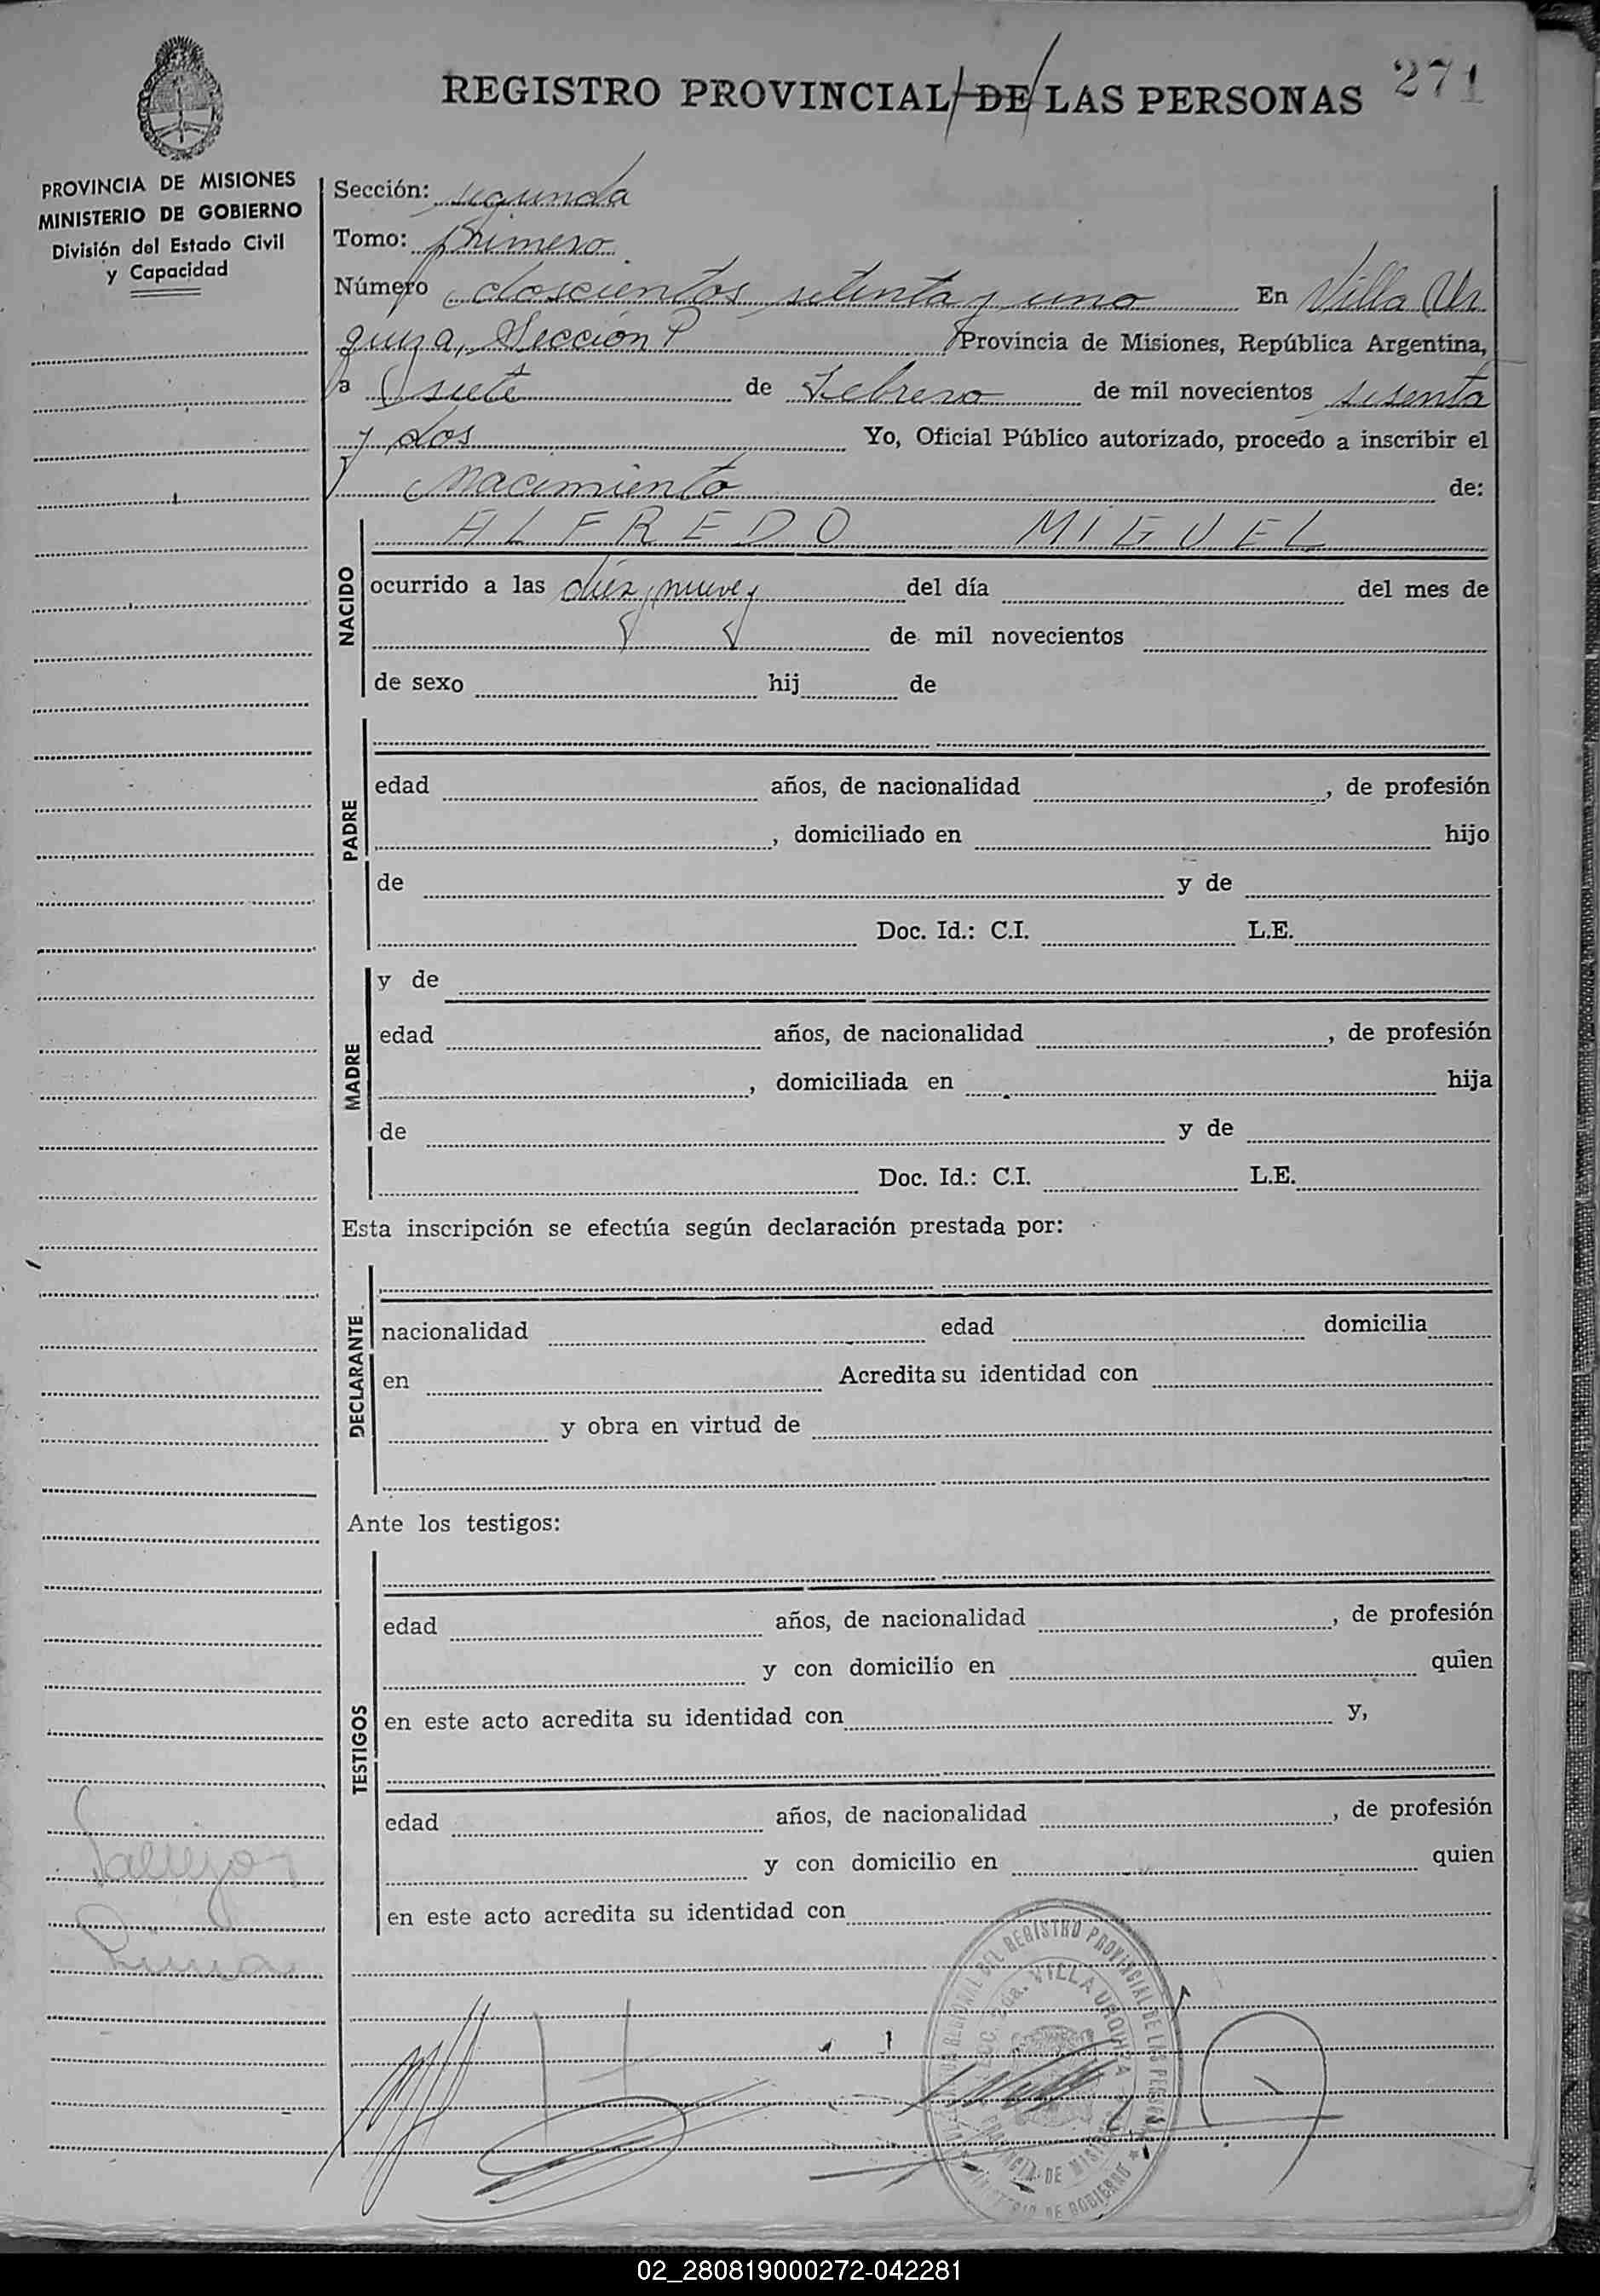 REGISTRO PROVINCIAL DE LAS PERSONAS 271
PROVINCIA DE MISIONES
MINISTERIO DE GOBIERNO
División del Estado Civil
y Capacidad
Sección: segunda
Tomo: primero
Número doscientos setenta y uno En Villa Ur
quiza, Sección Provincia de Misiones, República Argentina,
a siete de Febrero de mil novecientos sesenta
y dos Yo, Oficial Público autorizado, procedo a inscribir el
Nacimiento de:
NACIDO
ALFREDO MIGUEL
ocurrido a las diez y nueve y del día del mes de
de mil novecientos
de sexo hij de
PADRE
edad años, de nacionalidad , de profesión
, domiciliado en hijo
de y de
Doc. Id.: C.I. L.E.
MADRE
y de
edad años, de nacionalidad , de profesión
, domiciliada en hija
de y de
Doc. Id.: C.I. L.E.
Esta inscripción se efectúa según declaración prestada por:
DECLARANTE
nacionalidad edad domicilia
en Acredita su identidad con
y obra en virtud de
Ante los testigos:
TESTIGOS
edad años, de nacionalidad , de profesión
y con domicilio en quien
en este acto acredita su identidad con y,
edad años, de nacionalidad , de profesión
y con domicilio en quien
en este acto acredita su identidad con
Vallejos
REGIONAL DEL REGISTRO PROVINCIAL DE LAS PERSONAS
2da. VILLA URQUIZA
PROVINCIA DE MISIONES
MINISTERIO DE GOBIERNO
02_280819000272-042281